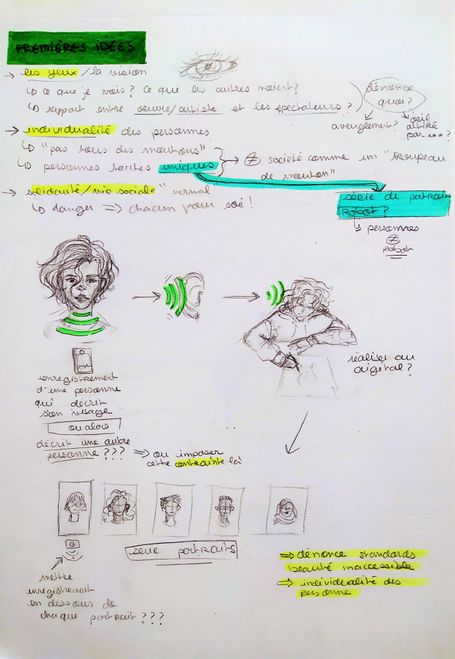 PREMIÈRES IDÉES
→ les yeux / la vision
↳ ce que je vois ? ce que les autres voient ?
↳ rapport entre oeuvre/artiste et les spectateurs ?
dénonce quoi ?
aveuglement ?
oeil attiré par ... ?
→ individualité des personnes
↳ "pas tous des moutons"
↳ personnes toutes uniques
≠ société comme un "troupeau
de mouton"
→ solidarité/vie sociale normal
↳ danger ⇒ chacun pour soi !
série de portrait
robot ?
↳ personnes
≠
robot
enregistrement
d'une personne
qui décrit
son visage
ou alors
décrit une autre
personne ???
⇒ ou imposer
cette contrainte là
réaliser au
digital ?
série portraits
mettre
enregistrement
en dessous de
chaque portrait ???
⇒ dénonce standards
beauté inaccessible
⇒ individualité des
personne